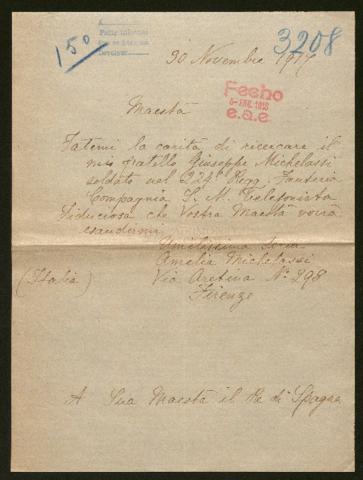 150
3208
30 Novembre 1917
Fecho
5-ENE. 1918
e.a.e.
Maestà
Fatemi la carità di ricercare il
mio fratello Giuseppe Michelassi
soldato nel 274º Regg. Fanteria
Compagnia S. M. Telefonista
Fiduciosa che Vostra Maestà vorrà
esaudirmi
Umilissima
Amelia Michelassi
(Italia)
Via Aretina Nº 298
Firenze
A Sua Maestà il Re di Spagna